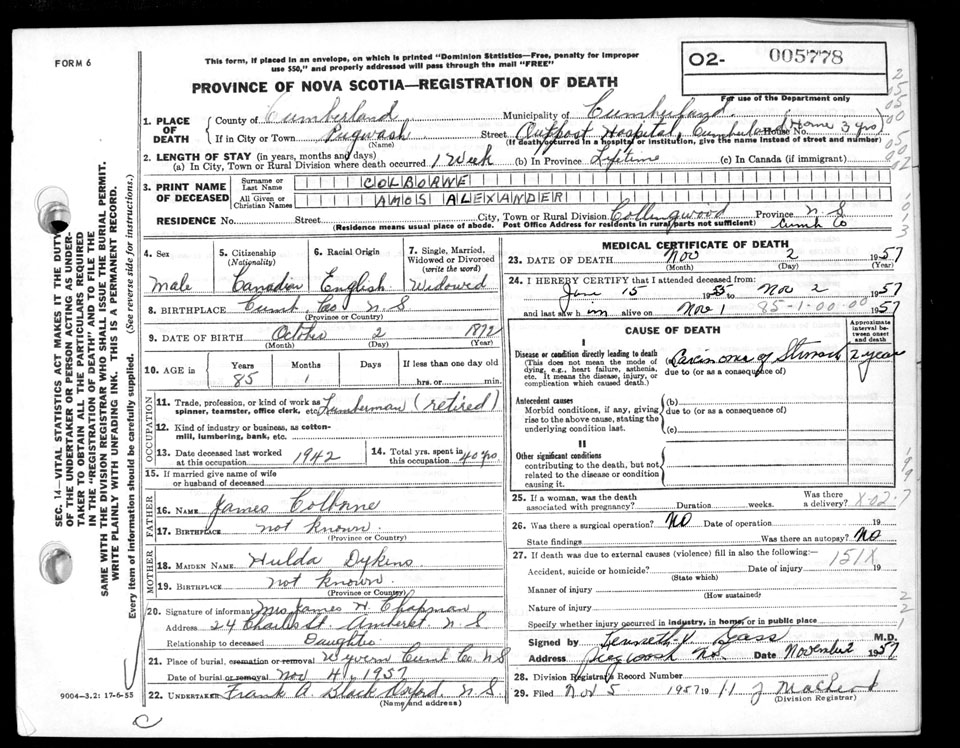 FORM 6
This form, if placed in an envelope, on which is printed "Dominion Statistics—Free, penalty for improper
use $50," and properly addressed will pass through the mail "FREE"
O2- 005778
For use of the Department only
PROVINCE OF NOVA SCOTIA—REGISTRATION OF DEATH
1. PLACE OF DEATH
County of Cumberland
Municipality of Cumberland
If in City or Town Pugwash
(Name)
Street Hospital, Cumberland Home 3 yrs)
House No.
(If death occurred in a hospital or institution, give the name instead of street and number)
2. LENGTH OF STAY (in years, months and days)
(a) In City, Town or Rural Division where death occurred 1 Week (b) In Province Lifetime (c) In Canada (if immigrant)
3. PRINT NAME OF DECEASED
Surname or Last Name COLBORNE
All Given or Christian Names AMOS ALEXANDER
RESIDENCE No. Street City, Town or Rural Division Collingwood Province N.S
(Residence means usual place of abode. Post Office Address for residents in rural parts not sufficient) Cumb Co
4. Sex
Male
5. Citizenship
(Nationality)
Canadian
6. Racial Origin
English
7. Single, Married, Widowed or Divorced
(write the word)
Widowed
8. BIRTHPLACE Cumb. Co. N.S
(Province or Country)
9. DATE OF BIRTH October 2 1872
(Month) (Day) (Year)
10. AGE in
Years 85
Months 1
Days
If less than one day old
hrs. or min.
OCCUPATION
11. Trade, profession, or kind of work as
spinner, teamster, office clerk, etc. Lumberman (retired)
12. Kind of industry or business, as cotton-
mill, lumbering, bank, etc.
13. Date deceased last worked
at this occupation 1942
14. Total yrs. spent in
this occupation 40 yrs.
15. If married give name of wife
or husband of deceased
FATHER
16. NAME James Colborne
17. BIRTHPLACE not known
(Province or Country)
MOTHER
18. MAIDEN NAME Hulda Dykens
19. BIRTHPLACE not known
(Province or Country)
20. Signature of informant Mrs James H. Chapman
Address 24 Charles St. Amherst N.S
Relationship to deceased Daughter
21. Place of burial, cremation or removal Wyvern Cumb Co. N.S
Date of burial or removal Nov 4, 1957
22. UNDERTAKER Frank A. Black Oxford. N.S.
(Name and address)
MEDICAL CERTIFICATE OF DEATH
23. DATE OF DEATH Nov 2 1957
(Month) (Day) (Year)
24. I HEREBY CERTIFY that I attended deceased from:
Jan 15 1955 to Nov 2 1957
and last saw h im alive on Nov 1 1957
85-1-00-00
CAUSE OF DEATH
Approximate interval between onset and death
I
Disease or condition directly leading to death
(This does not mean the mode of
dying, e.g., heart failure, asthenia,
etc. It means the disease, injury, or
complication which caused death.)
(a) Carcinoma of Stomach 2 year
due to (or as a consequence of)
Antecedent causes
Morbid conditions, if any, giving
rise to the above cause, stating the
underlying condition last.
(b)
due to (or as a consequence of)
(c)
II
Other significant conditions
contributing to the death, but not
related to the disease or condition
causing it.
25. If a woman, was the death
associated with pregnancy? Duration weeks. Was there a delivery?
X-02-7
26. Was there a surgical operation? No Date of operation 19
State findings Was there an autopsy? No
27. If death was due to external causes (violence) fill in also the following:—
151X
Accident, suicide or homicide? Date of injury 19
(State which)
Manner of injury
(How sustained)
Nature of injury
Specify whether injury occurred in industry, in home, or in public place
Signed by Kenneth V. Gass M.D.
Address Pugwash N.S. Date November 2 1957
28. Division Registrar's Record Number
29. Filed Nov 5 1957 19 11 J MacLeod
(Division Registrar)
SEC. 14—VITAL STATISTICS ACT MAKES IT THE DUTY
OF THE UNDERTAKER OR PERSON ACTING AS UNDER-
TAKER TO OBTAIN ALL THE PARTICULARS REQUIRED
IN THE "REGISTRATION OF DEATH" AND TO FILE THE
SAME WITH THE DIVISION REGISTRAR WHO SHALL ISSUE THE BURIAL PERMIT.
WRITE PLAINLY WITH UNFADING INK. THIS IS A PERMANENT RECORD.
Every item of information should be carefully supplied. (See reverse side for instructions.)
9004-3.2: 17-6-53